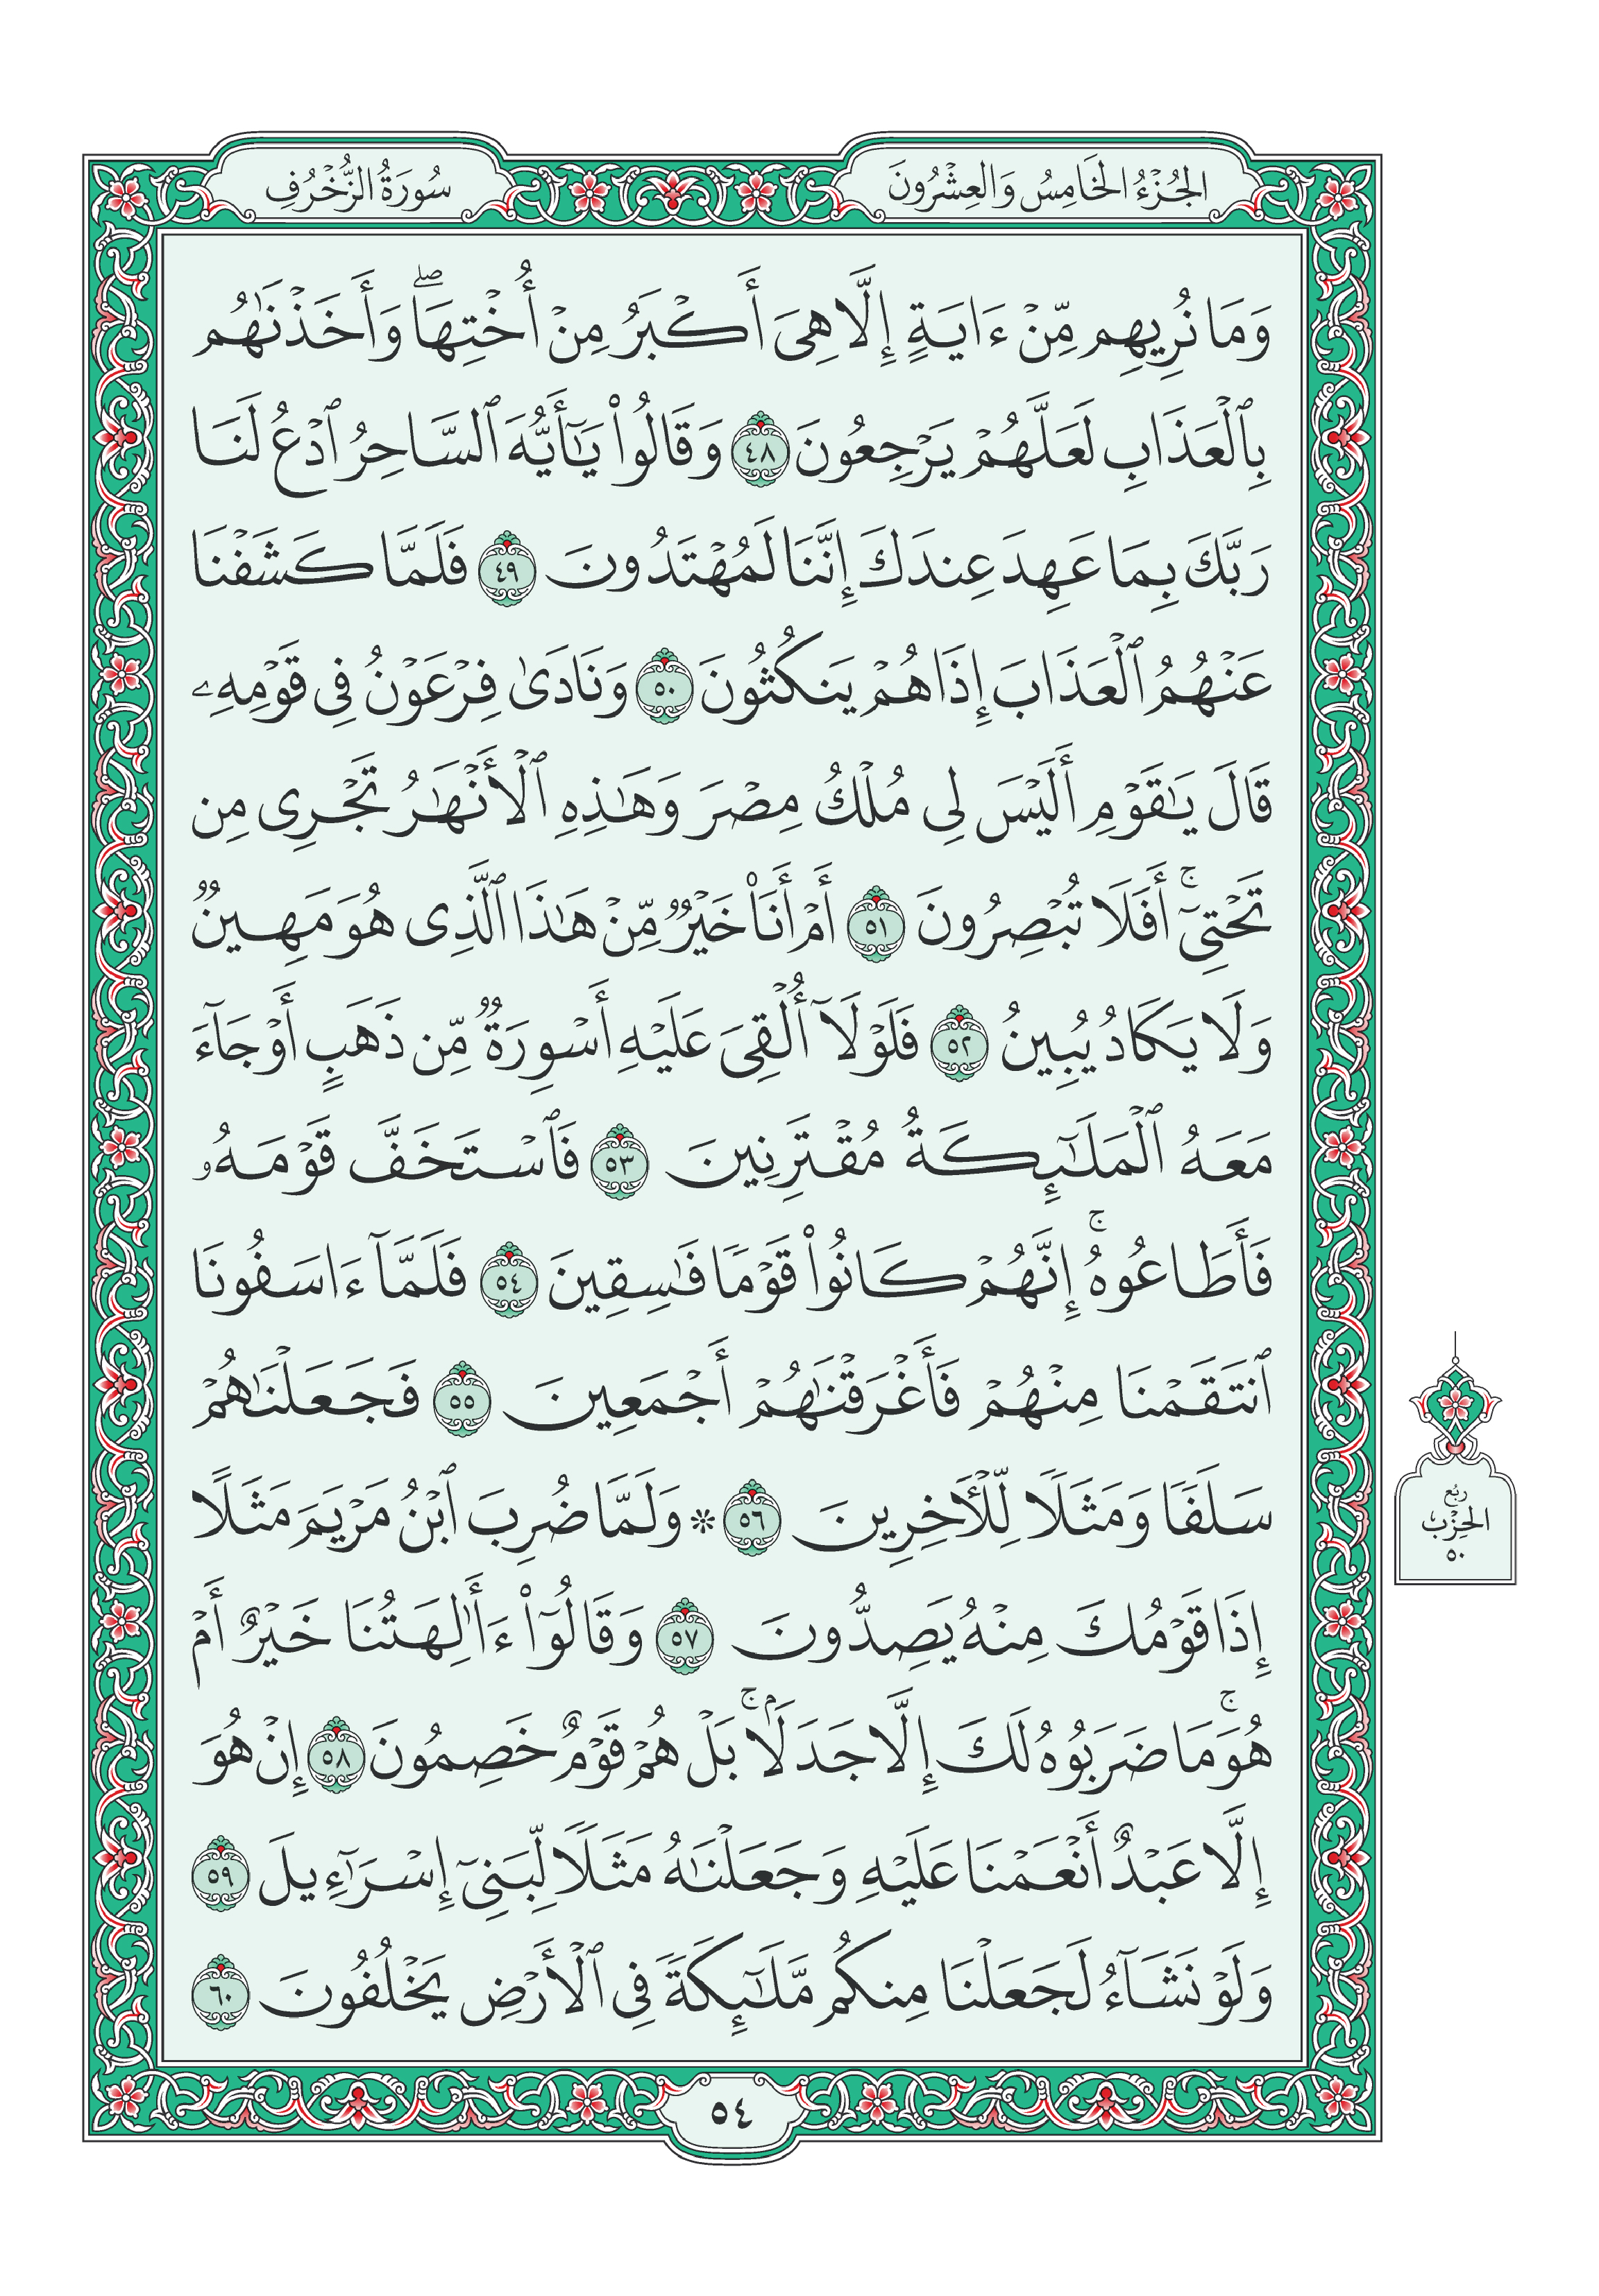 الجُزْءُ الخَامِسُ وَالعِشْرُونَ
سُورَةُ الزُّخْرُفِ
وَمَا نُرِيهِم مِّنْ ءَايَةٍ إِلَّا هِىَ أَكْبَرُ مِنْ أُخْتِهَاۖ وَأَخَذْنَٰهُم
بِٱلْعَذَابِ لَعَلَّهُمْ يَرْجِعُونَ ٤٨ وَقَالُوا۟ يَٰٓأَيُّهَ ٱلسَّاحِرُ ٱدْعُ لَنَا
رَبَّكَ بِمَا عَهِدَ عِندَكَ إِنَّنَا لَمُهْتَدُونَ ٤٩ فَلَمَّا كَشَفْنَا
عَنْهُمُ ٱلْعَذَابَ إِذَا هُمْ يَنكُثُونَ ٥٠ وَنَادَىٰ فِرْعَوْنُ فِى قَوْمِهِۦ
قَالَ يَٰقَوْمِ أَلَيْسَ لِى مُلْكُ مِصْرَ وَهَٰذِهِ ٱلْأَنْهَٰرُ تَجْرِى مِن
تَحْتِىٓۚ أَفَلَا تُبْصِرُونَ ٥١ أَمْ أَنَا۠ خَيْرٌ مِّنْ هَٰذَا ٱلَّذِى هُوَ مَهِينٌ
وَلَا يَكَادُ يُبِينُ ٥٢ فَلَوْلَآ أُلْقِىَ عَلَيْهِ أَسْوِرَةٌ مِّن ذَهَبٍ أَوْ جَآءَ
مَعَهُ ٱلْمَلَٰٓئِكَةُ مُقْتَرِنِينَ ٥٣ فَٱسْتَخَفَّ قَوْمَهُۥ
فَأَطَاعُوهُۚ إِنَّهُمْ كَانُوا۟ قَوْمًا فَٰسِقِينَ ٥٤ فَلَمَّآ ءَاسَفُونَا
ٱنتَقَمْنَا مِنْهُمْ فَأَغْرَقْنَٰهُمْ أَجْمَعِينَ ٥٥ فَجَعَلْنَٰهُمْ
سَلَفًا وَمَثَلًا لِّلْءَاخِرِينَ ٥٦ ۞ وَلَمَّا ضُرِبَ ٱبْنُ مَرْيَمَ مَثَلًا
إِذَا قَوْمُكَ مِنْهُ يَصِدُّونَ ٥٧ وَقَالُوٓا۟ ءَأَٰلِهَتُنَا خَيْرٌ أَمْ
هُوَۚ مَا ضَرَبُوهُ لَكَ إِلَّا جَدَلًۢاۚ بَلْ هُمْ قَوْمٌ خَصِمُونَ ٥٨ إِنْ هُوَ
إِلَّا عَبْدٌ أَنْعَمْنَا عَلَيْهِ وَجَعَلْنَٰهُ مَثَلًا لِّبَنِىٓ إِسْرَٰٓءِيلَ ٥٩
وَلَوْ نَشَآءُ لَجَعَلْنَا مِنكُم مَّلَٰٓئِكَةً فِى ٱلْأَرْضِ يَخْلُفُونَ ٦٠
ربع
الحِزْب
٥٠
٥٤